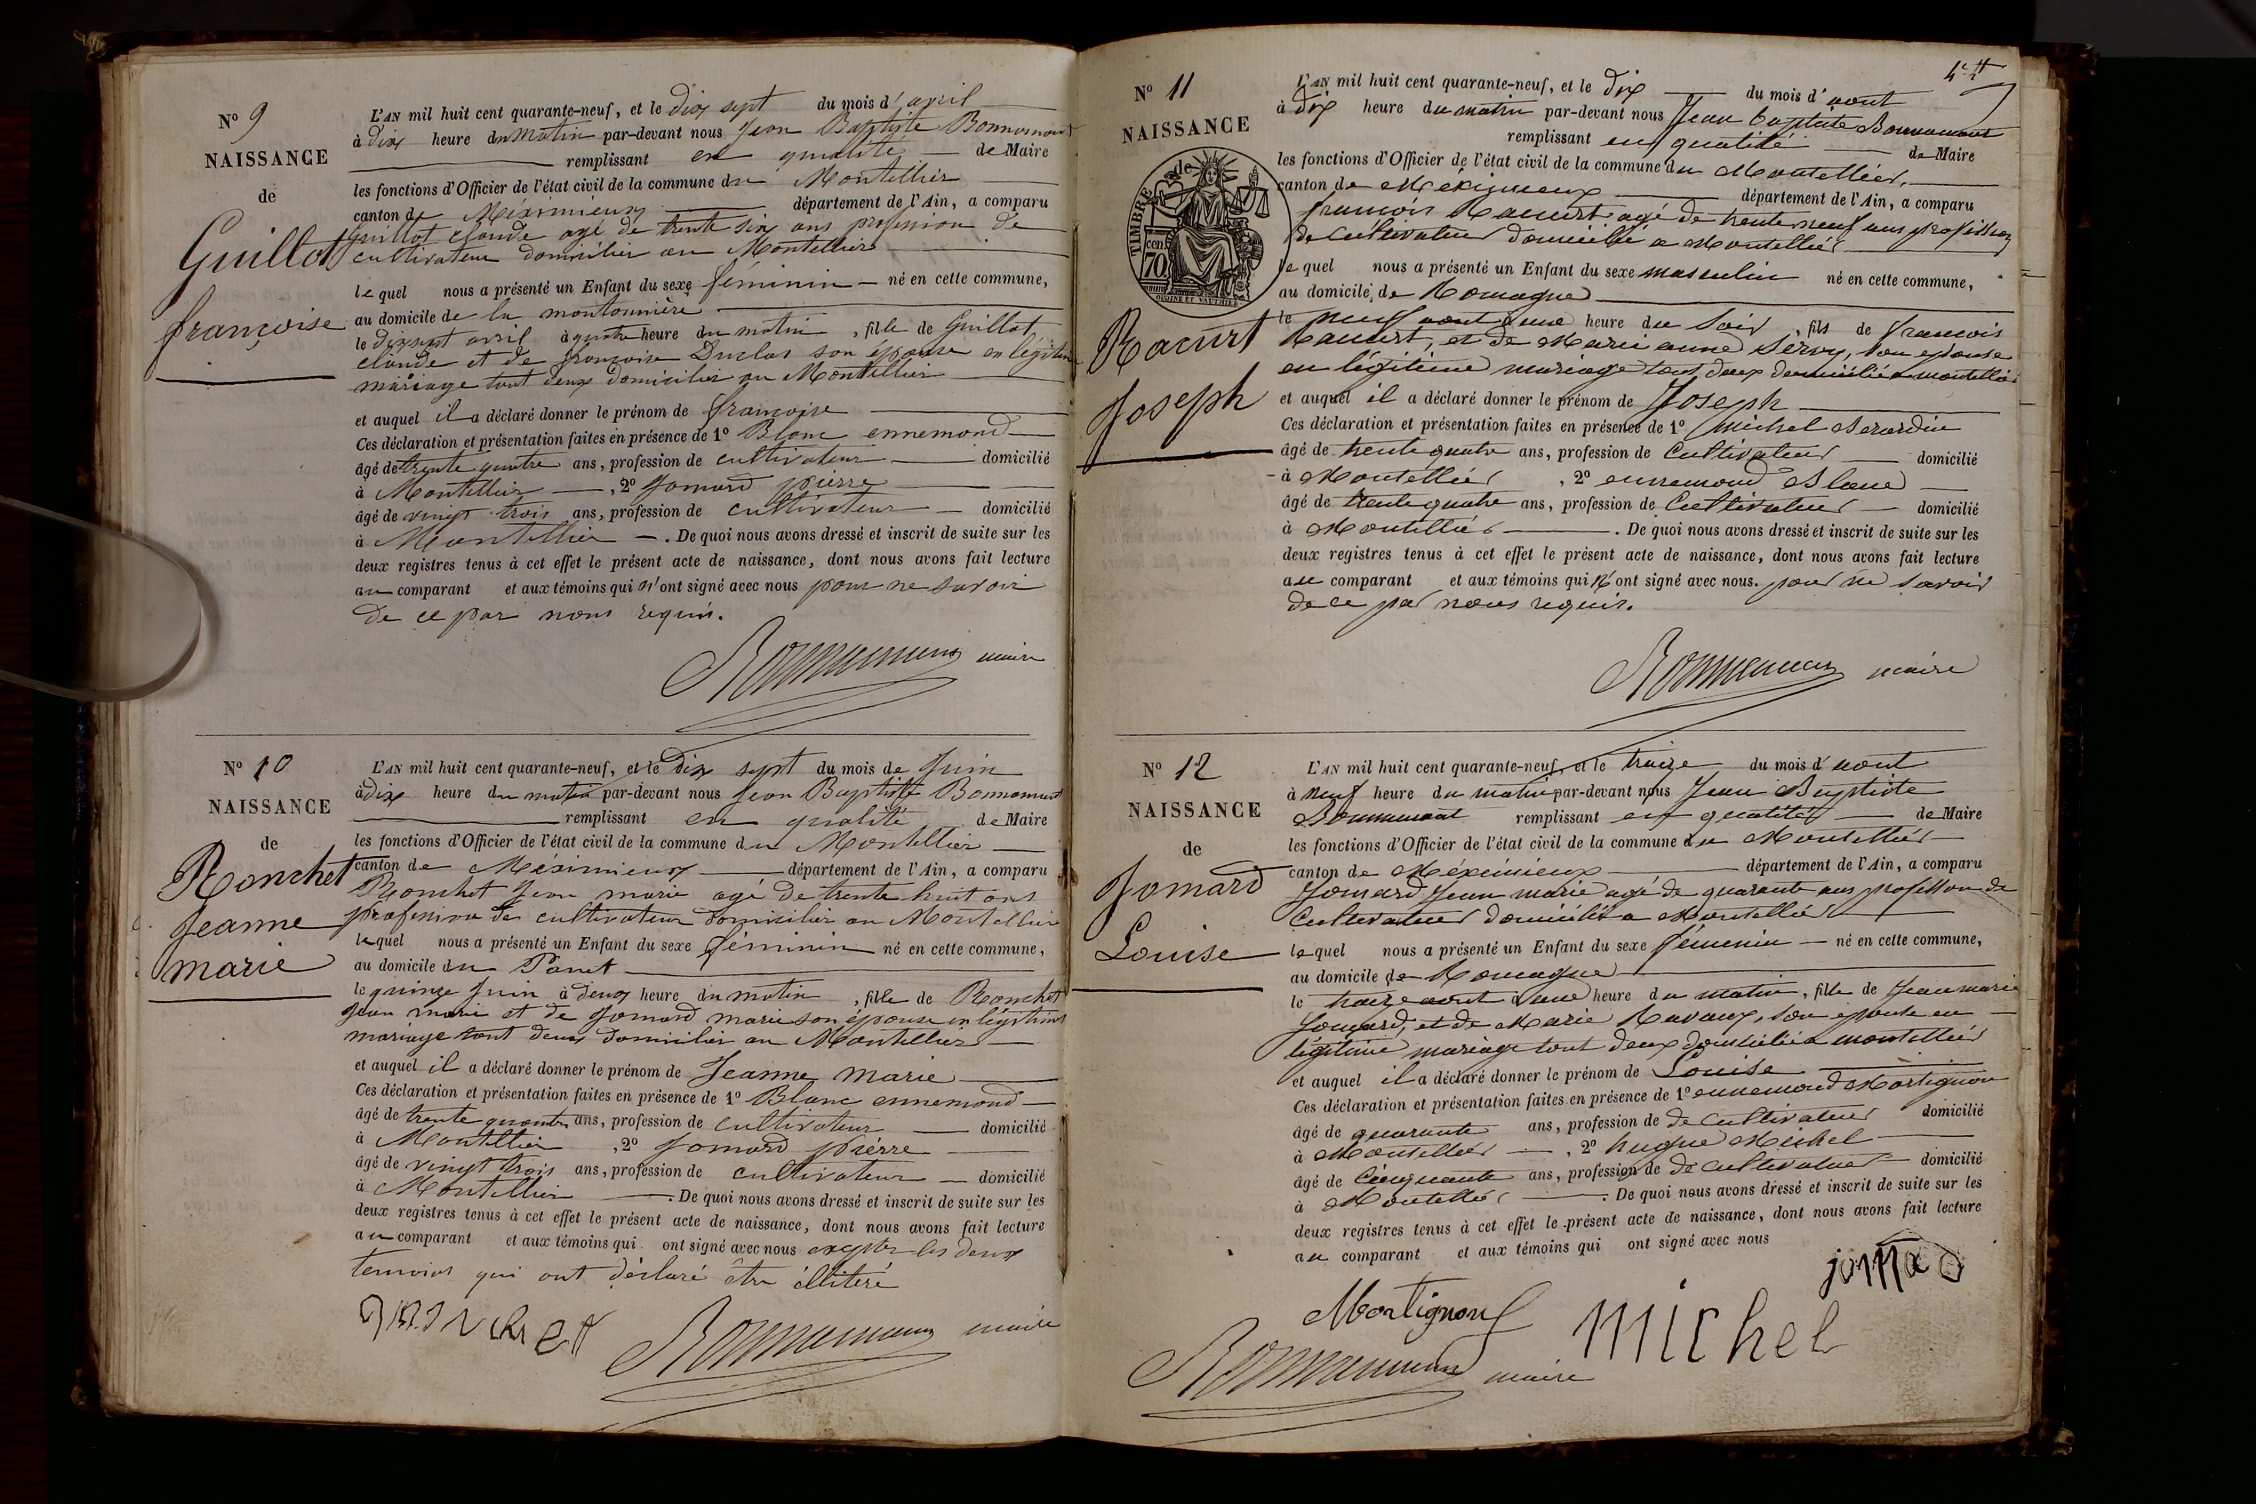 N° 9
NAISSANCE
de
Guillot
françoise
L'AN mil huit cent quarante-neuf, et le dix sept du mois d'avril
à dix heure du matin par-devant nous Jean Baptiste Bonnamant
remplissant en qualité de Maire
les fonctions d'Officier de l'état civil de la commune du Montellier
canton de Méximieux département de l'Ain, a comparu
guillot claude agé de trente six ans profession de
cultivateur domicilier au Montellier
le quel nous a présenté un Enfant du sexe féminin né en cette commune,
au domicile de la moutonnière
le dixsept avril à quatre heure du matin, fille de Guillot
claude et de françoise Duclos son épouse en légitime
mariage tout deux domicilier au Montellier
et auquel il a déclaré donner le prénom de françoise
Ces déclaration et présentation faites en présence de 1° Blanc ennemond
âgé de trente quatre ans, profession de cultivateur domicilié
à Montellier, 2° Jomard pierre
âgé de vingt trois ans, profession de cultivateur domicilié
à Montellier. De quoi nous avons dressé et inscrit de suite sur les
deux registres tenus à cet effet le présent acte de naissance, dont nous avons fait lecture
au comparant et aux témoins qui n'ont signé avec nous pour ne savoir
de ce par nous requis.
Bonnamant maire
N° 10
NAISSANCE
de
Ronchet
Jeanne
marie
L'AN mil huit cent quarante-neuf, et le dix sept du mois de Juin
à dix heure du matin par-devant nous Jean Baptiste Bonnamant
remplissant en qualité de Maire
les fonctions d'Officier de l'état civil de la commune du Montellier
canton de Méximieux département de l'Ain, a comparu
Ronchet Jean marie agé de trente huit ans
profession de cultivateur domicilier au Montellier
lequel nous a présenté un Enfant du sexe féminin né en cette commune,
au domicile du
le quinze Juin à deux heure du matin, fille de Ronchet
Jean marie et de Jomard marie son épouse en légitime
mariage tout deux domicilier au Montellier
et auquel il a déclaré donner le prénom de Jeanne marie
Ces déclaration et présentation faites en présence de 1° Blanc ennemond
âgé de trente quatre ans, profession de cultivateur domicilié
à Montellier, 2° Jomard pierre
âgé de vingt trois ans, profession de cultivateur domicilié
à Montellier. De quoi nous avons dressé et inscrit de suite sur les
deux registres tenus à cet effet le présent acte de naissance, dont nous avons fait lecture
au comparant et aux témoins qui ont signé avec nous excepter les deux
temoins qui ont déclaré être illiteré
Bonnamant maire
N° 11
NAISSANCE
TIMBRE
cen
70
Racurt
Joseph
L'AN mil huit cent quarante-neuf, et le dix du mois d'aout
à dix heure du matin par-devant nous Jean baptiste Bonnamant
remplissant en qualité de Maire
les fonctions d'Officier de l'état civil de la commune du Montellier,
canton de Méximieux département de l'Ain, a comparu
françois Racurt agé de trente neuf ans profession
de Cultivateur domicilié a Montellier
le quel nous a présenté un Enfant du sexe masculin né en cette commune,
au domicile de Romagne
le neuf aout à une heure du soir, fils de françois
Racurt, et de Marie anne Servy, son epouse
en légitime mariage tout deux domicilié a montellier
et auquel il a déclaré donner le prénom de Joseph
Ces déclaration et présentation faites en présence de 1° michel Serardin
âgé de trente quatre ans, profession de Cultivateur domicilié
à Montellier, 2° ennemond Blanc
âgé de trente quatre ans, profession de Cultivateur domicilié
à Montellier. De quoi nous avons dressé et inscrit de suite sur les
deux registres tenus à cet effet le présent acte de naissance, dont nous avons fait lecture
au comparant et aux témoins qui n'ont signé avec nous. pour ne savoir
de ce par nous requis.
Bonnamant maire
N° 12
NAISSANCE
de
Jomard
Louise
L'AN mil huit cent quarante-neuf, et le traize du mois d'aout
à neuf heure du matin par-devant nous Jean Baptiste
Bonnamant remplissant en qualité de Maire
les fonctions d'Officier de l'état civil de la commune du Montellier
canton de Méximieux département de l'Ain, a comparu
Jomard Jean marie agé de quarante ans profession de
Cultivateur domicilié a Montellier
lequel nous a présenté un Enfant du sexe féminin né en cette commune,
au domicile de Romagne
le traize aout à une heure du matin, fille de Jean marie
Jomard, et de Marie Ravaux, son epouse en
légitime mariage tout deux domicilié a montellier
et auquel il a déclaré donner le prénom de Louise
Ces déclaration et présentation faites en présence de 1° ennemond Martignon
âgé de quarante ans, profession de de cultivateur domicilié
à Montellier, 2° hugue Michel
âgé de Cinquante ans, profession de de cultivateur domicilié
à Montellier. De quoi nous avons dressé et inscrit de suite sur les
deux registres tenus à cet effet le présent acte de naissance, dont nous avons fait lecture
au comparant et aux témoins qui ont signé avec nous
jomard
Martignon
michel
Bonnamant maire